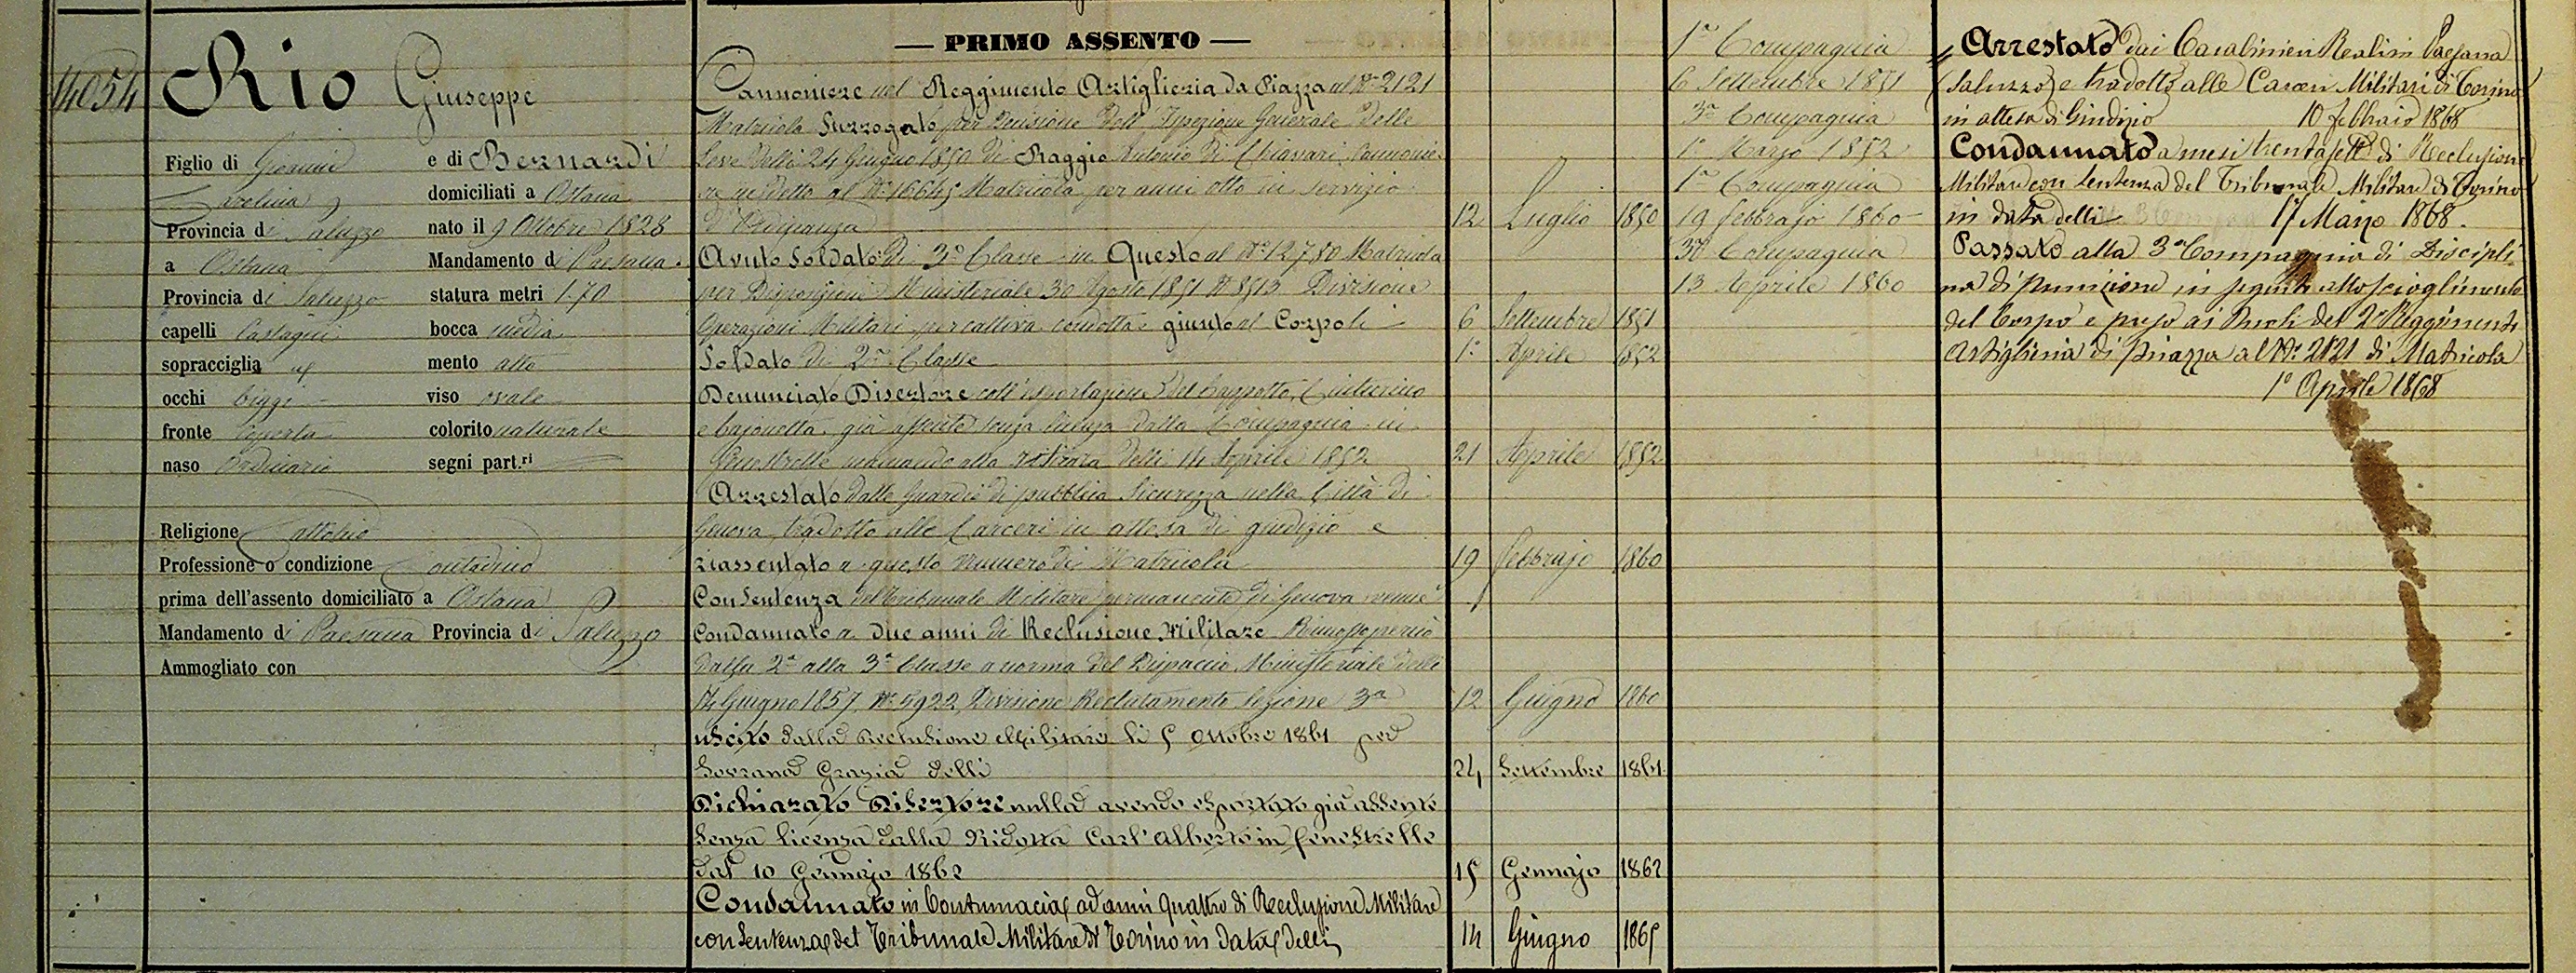 14054
Rio Giuseppe
Figlio di Giovanni e di Bernardi
domiciliati a Ostana
Provincia di Saluzzo nato il 9 Ottobre 1828
a Ostana Mandamento di Paesana
Provincia di Saluzzo statura metri 1.70
capelli Castagni bocca media
sopracciglia id mento alto
occhi bigi viso ovale
fronte coperta colorito naturale
naso Ordinario segni part.ri
Religione Cattolico
Professione o condizione Contadino
prima dell'assento domiciliato a Ostana
Mandamento di Paesana Provincia di Saluzzo
Ammogliato con
— PRIMO ASSENTO —
Cannoniere nel Reggimento Artiglieria da Piazza al N° 2121
Matricola Surrogato per Decisione dell'Ispezione Generale delle
Leve delli 24 Giugno 1850 di Raggio Antonio di Chiavari, Cannonie-
re addetto al N° 16645 Matricola per anni otto in servizio
d'Ordinanza 12 Luglio 1850
Avuto Soldato di 3a Classe in Questo al N° 12780 Matricola
per Disposizioni Ministeriale 30 Agosto 1851 N° 8513 Divisione
Operazioni Militari per cattiva condotta giunto al Corpo li 6 Settembre 1851
Soldato di 2a Classe 1° Aprile 1852
Denunciato Disertore coll'esportazione del Cappotto, Cinturino
e bajonetta, già assente senza licenza dalla Compagnia in
Fenestrelle mancando alla ritirata delli 14 Aprile 1852 21 Aprile 1852
Arrestato dalle Guardie di pubblica Sicurezza nella Città di
Genova, tradotto alle Carceri in attesa di giudizio e
riassentato a questo numero di Matricola 19 Febbrajo 1860
Con Sentenza del Tribunale Militare permanente di Genova venne
Condannato a due anni di Reclusione Militare Rimosso perciò
dalla 2a alla 3a Classe a norma del Dispaccio Ministeriale delli
14 Giugno 1857 N° 5922 Divisione Reclutamento Sezione 3a 12 Giugno 1860
uscito dalla Reclusione Militare li 5 Ottobre 1861 per
Sovrana Grazia delli 24 Settembre 1861
Dichiarato Disertore nulla avendo esportato già assente
senza licenza dalla Ridotta Carl'Alberto in Fenestrelle
dal 10 Gennajo 1862 15 Gennajo 1862
Condannato in Contumacia ad anni quattro di Reclusione Militare
con Sentenza del Tribunale Militare di Torino in data delli 14 Giugno 1865
1a Compagnia
6 Settembre 1851
3a Compagnia
1° Marzo 1852
1a Compagnia
19 febbrajo 1860
3a Compagnia
13 Aprile 1860
Arrestato dai Carabinieri Reali in Paesana
(Saluzzo) e tradotto alle Carceri Militari di Torino
in attesa di Giudizio 10 febbraio 1868
Condannato a mesi trentasette di Reclusione
Militare con Sentenza del Tribunale Militare di Torino
in data delli 17 Marzo 1868.
Passato alla 3a Compagnia di Discipli-
na di punizione in seguito allo scioglimento
del Corpo e preso ai Ruoli del 2° Reggimento
Artiglieria di piazza al N°. 2121 di Matricola
1° Aprile 1868